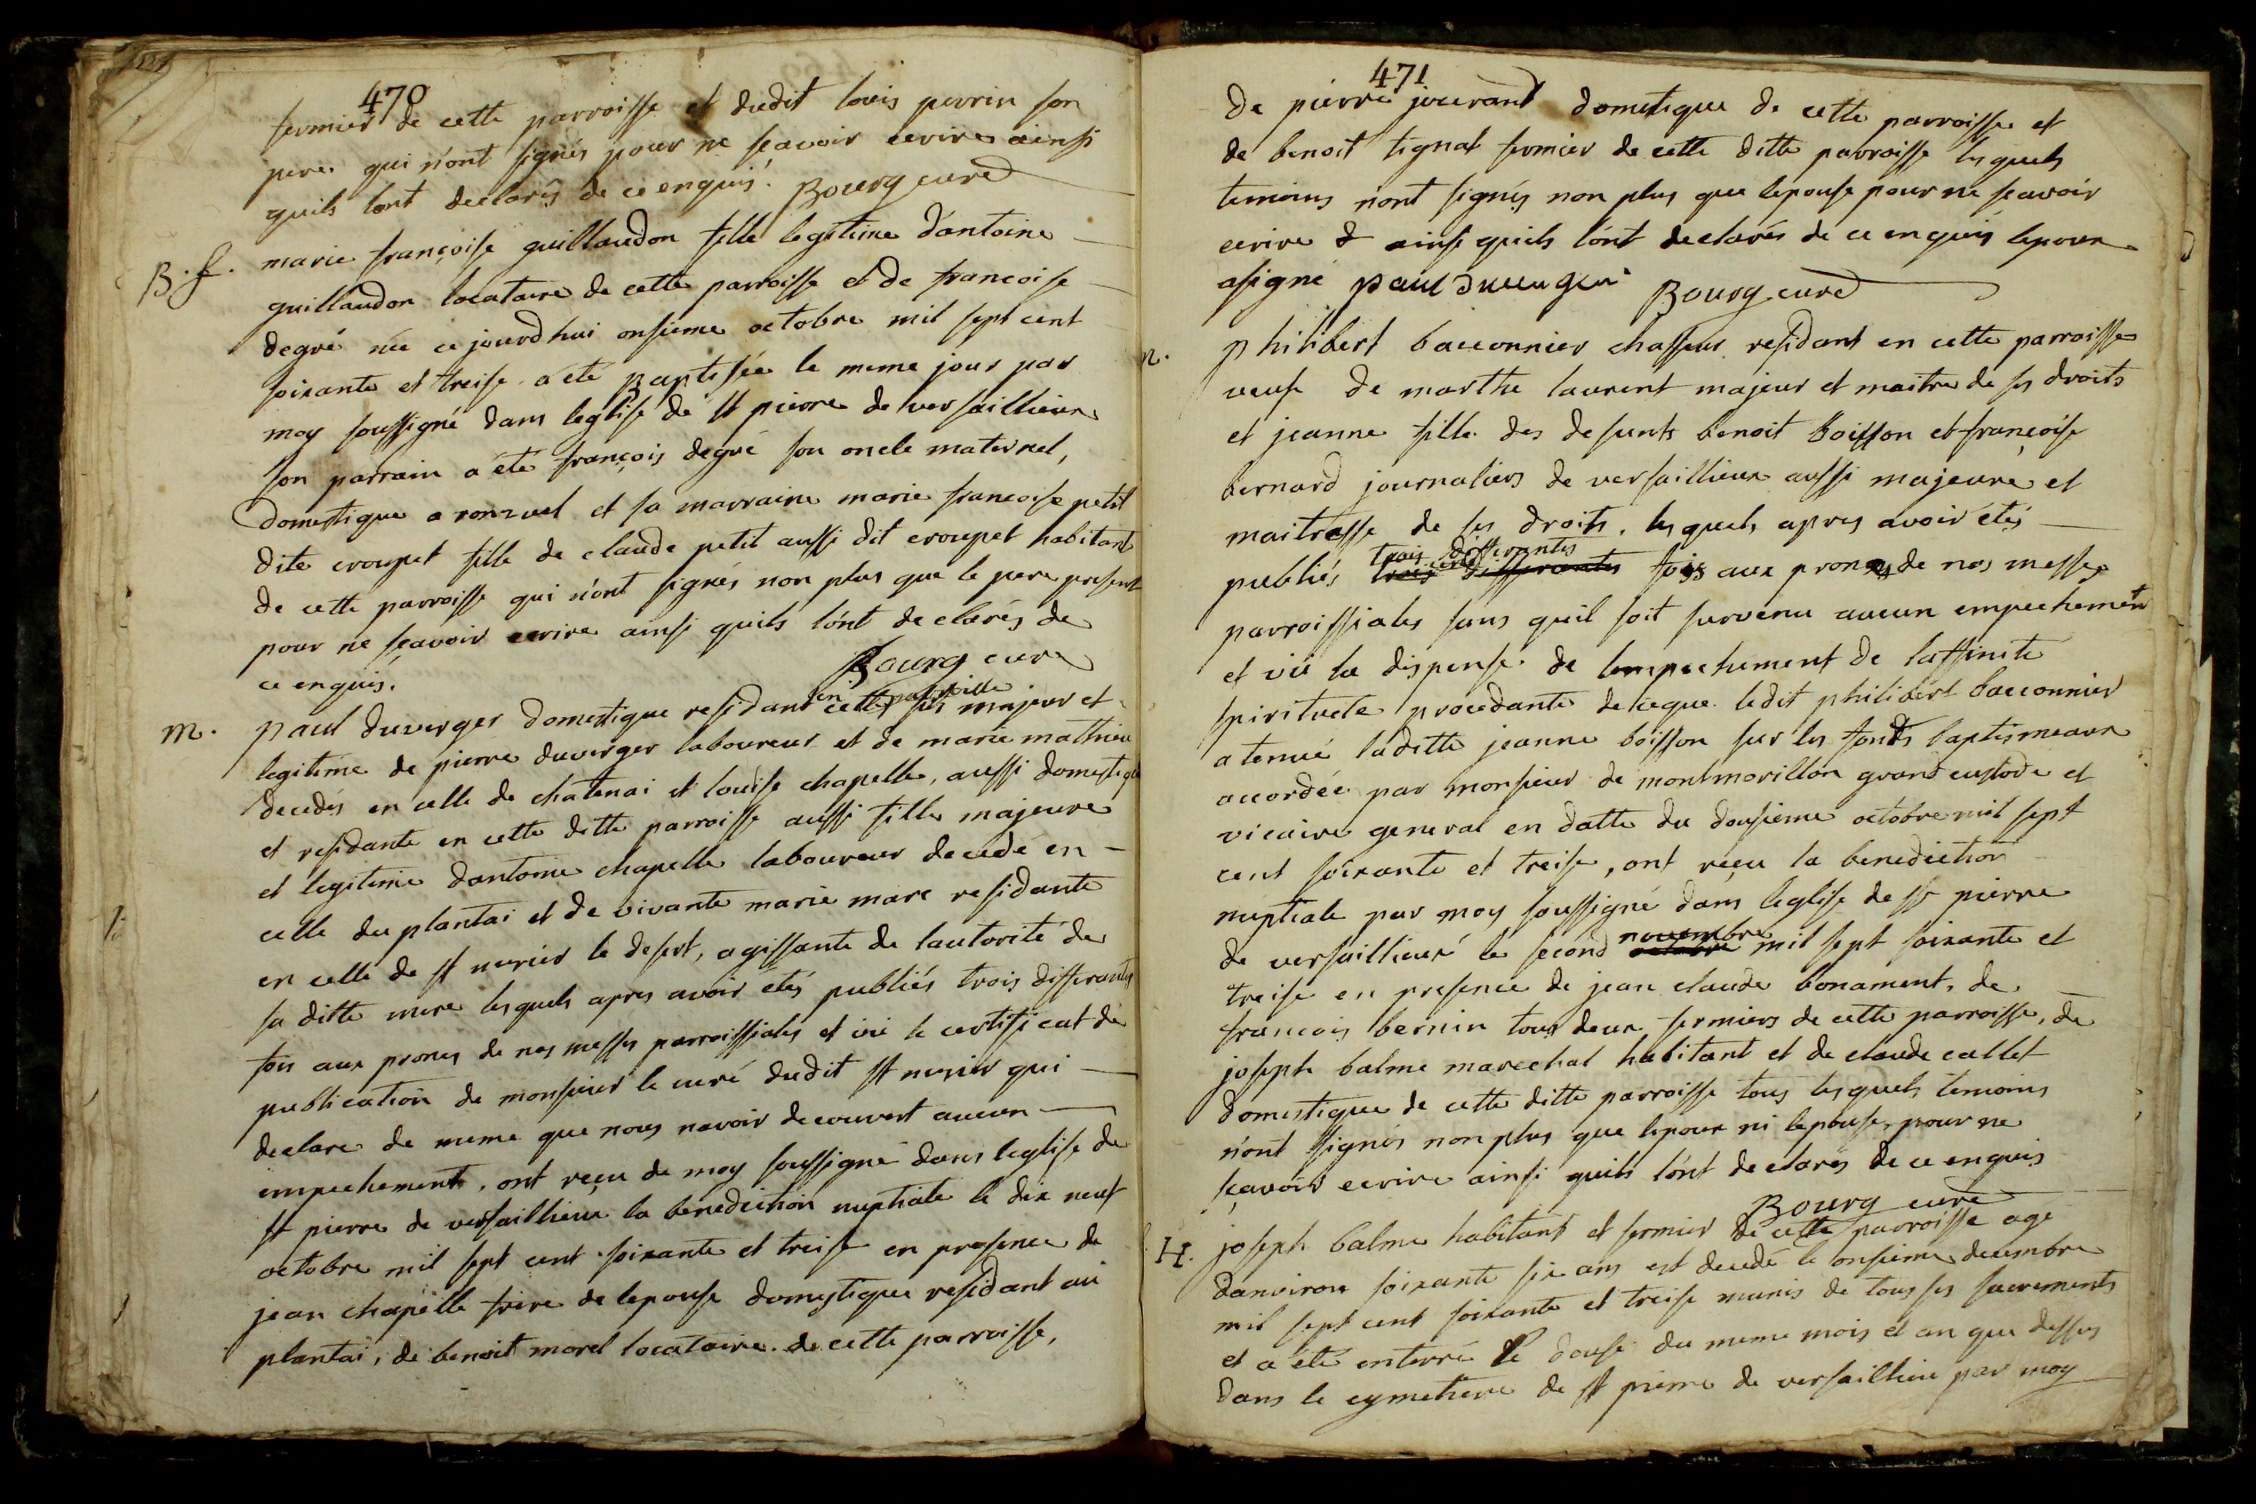 470
fermier de cette parroisse et dudit louis perrin son
pere qui n'ont signés pour ne sçavoir ecrire ainsi
quils l'ont declarés de ce enquis. Bourg curé
B. f. marie françoise guillaudon fille legitime d'antoine
guillaudon locataire de cette parroisse et de françoise
degré née ce jourdhui onsieme octobre mil sept cent
soixante et treise a été Baptisée le meme jour par
moy soussigné dans leglise de st pierre de versaillieux
son parrain a été françois degré son oncle maternel,
domestique a ronzuel et sa marraine marie françoise petit
dite croupet fille de claude petit aussi dit croupet habitant
de cette parroisse qui n'ont signés non plus que le pere present
pour ne sçavoir ecrire ainsi quils l'ont declarés de
ce enquis. Bourg curé
m. paul duverger domestique residant en cette parroisse fils majeur et
legitime de pierre duverger laboureur et de marie mathieu
decedés en celle de chatenai et louise chapelle, aussi domestique
et residante en cette ditte parroisse aussi fille majeure
et legitime dantoine chapelle laboureur decedé en
celle du plantai et de vivante marie marc residante
en celle de st nisier le desert, agissante de lautorité de
sa ditte mere lesquels apres avoir étés publiés trois differantes
fois aux prones de nos messes parroissiales et vû le certificat de
publication de monsieur le curé dudit st nisier qui
declare de meme que nous navoir decouvert aucun
empechement, ont reçu de moy soussigné dans leglise de
st pierre de versaillieux la benediction nuptiale le dix neuf
octobre mil sept cent soixante et treise en presence de
jean chapelle frere de lepouse domestique residant au
plantai, de benoit morel locataire de cette parroisse,
471
de pierre juverant domestique de cette parroisse et
de benoit tignat fermier de cette ditte parroisse lesquels
temoins n'ont signés non plus que lepouse pour ne sçavoir
ecrire & ainsi quils l'ont declarés de ce enquis lepoux
a signé paul duverger Bourg curé
m. philibert bacconnier chasseur residant en cette parroisse
veuf de marthe laurent majeur et maitre de ses droits
et jeanne fille des defunts benoit boisson et françoise
bernard journaliers de versaillieux aussi majeure, et
maitresse de ses droits. lesquels apres avoir étés
publiés trois differantes fois aux prones de nos messes
parroissiales sans quil soit survenu aucun empechement
et vû la dispense de lempechement de laffinité
spirituele procedante de ce que ledit philibert bacconnier
a tenué laditte jeanne boisson sur les fonds baptismeaux
accordée par monsieur de montmorillon grand custode et
vicaire general en datte du dousieme octobre mil sept
cent soixante et treise, ont reçu la benediction
nuptiale par moy soussigné dans leglise de st pierre
de versaillieux le second novembre mil sept soixante et
treise en presence de jean claude bonament, de
francois bernin tous deux fermiers de cette parroisse, de
joseph balme marechal habitant et de claude callet
domestique de cette ditte parroisse tous lesquels temoins
n'ont signés non plus que lepoux ni lepouse, pour ne
sçavoir ecrire ainsi quils l'ont declarés de ce enquis
Bourg curé
H. joseph balme habitant et fermier de cette parroisse agé
danviron soixante six ans est decedé le onsieme decembre
mil sept cent soixante et treise munis de tous ses sacrements
et a été enterré le douse du meme mois et an que dessus
dans le cymetiere de st pierre de versaillieux par moy